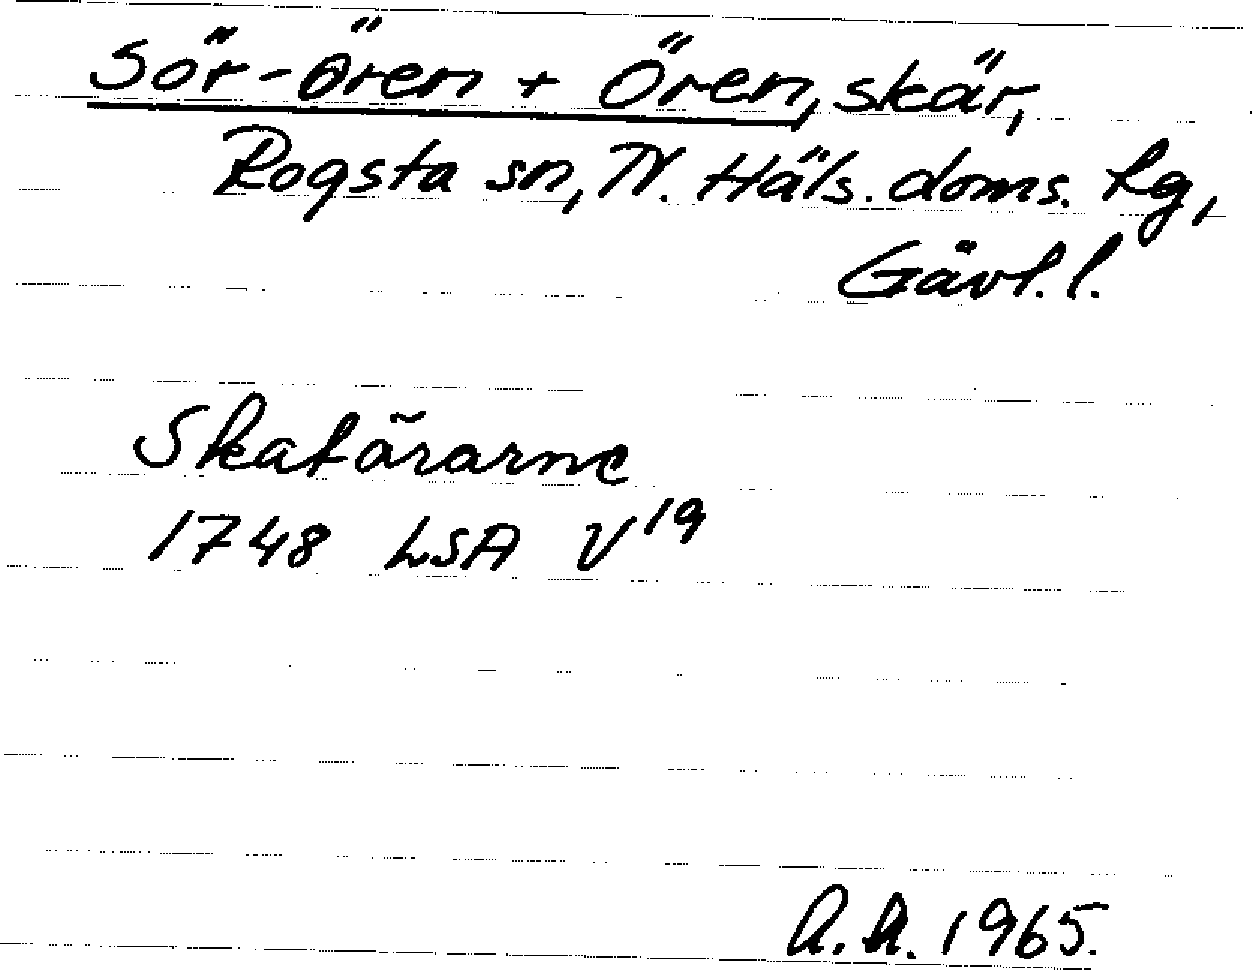 Sör-Ören + Ören, skär,
Rogsta sn, N. Häls. doms. lg,
Gävl. l.
Skatörarne
1748 LSA V19
A.A. 1965.